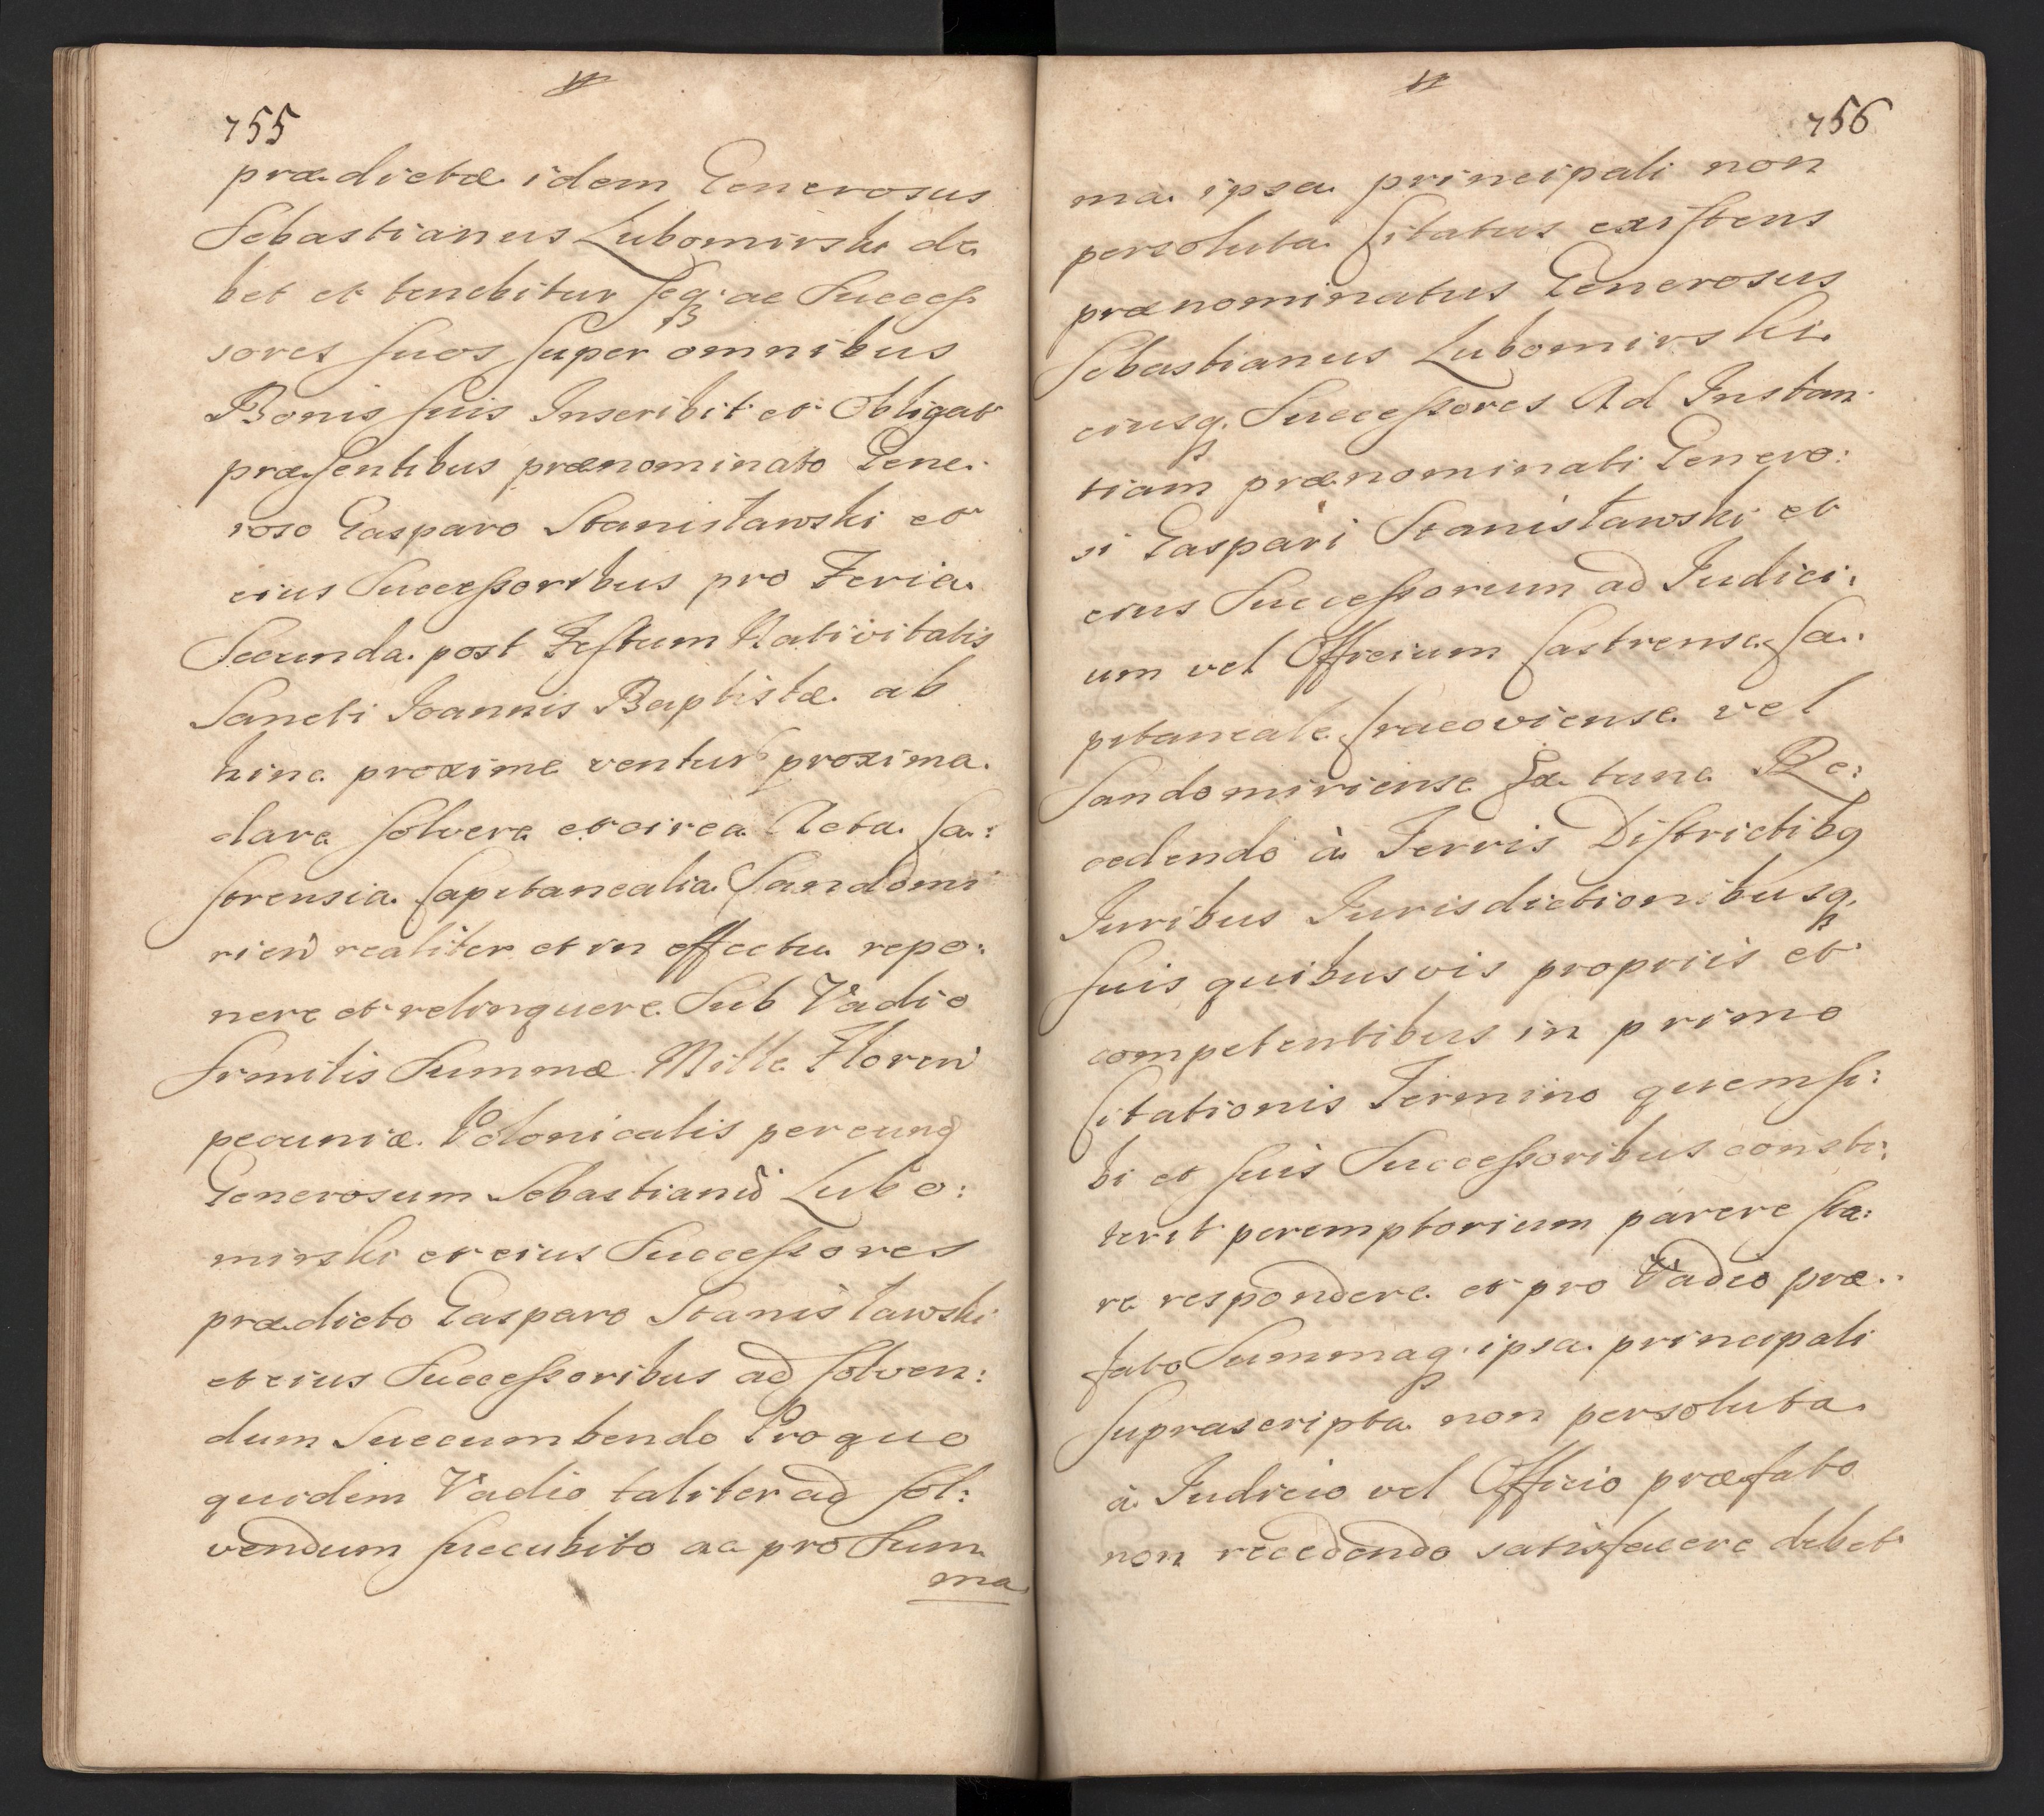 755
prædictæ idem Generosus
Sebastianus Lubomirski de
bet et tenebitur seq; ac Succes
sores suos super omnibus
Bonis suis Inscribit et Obligat
præsentibus prænominato Gene:
roso Gasparo Stanisławski et
eius Successoribus pro Feria
Secunda post Festum Nativitatis
Sancti Joannis Baptistæ ab
hinc proxime ventur proxima
dare solvere et circa Acta Ca:
strensia Capitanealia Sandomi
rien realiter et in effectu repo:
nere et relinquere Sub Vadio
similis Summæ Mille Floren
pecuniæ Polonicalis per eund
Generosum Sebastianū Lubo:
mirski et eius Successores
prædicto Gasparo Stanisławski
et eius Successoribus ad solven:
dum Succumbendo Pro quo
quidem Vadio taliter ad sol:
vendum succubito ac pro Sum
ma
756
ma ipsa principali non
persoluta Citatus existens
prænominatus Generosus
Sebastianus Lubomirski
eiusq; Successores Ad Instan
tiam prænominati Genero:
si Gaspari Stanisławski et
eius Successorum ad Judici:
um vel Officium Castrense Ca:
pitaneale Cracoviense vel
Sandomiriense Ex tunc Re:
cedendo à Terris Districtibq
Juribus Jurisdictionibusq;
suis quibusvis propriis et
competentibus in primo
Citationis Termino quem si:
bi et suis Successoribus consti:
terit peremptorium parere sta:
re respondere et pro Vadio præ:
fato Summaq; ipsa principali
suprascripta non persoluta
à Judicio vel Officio præfato
non recedendo satisfacere debet